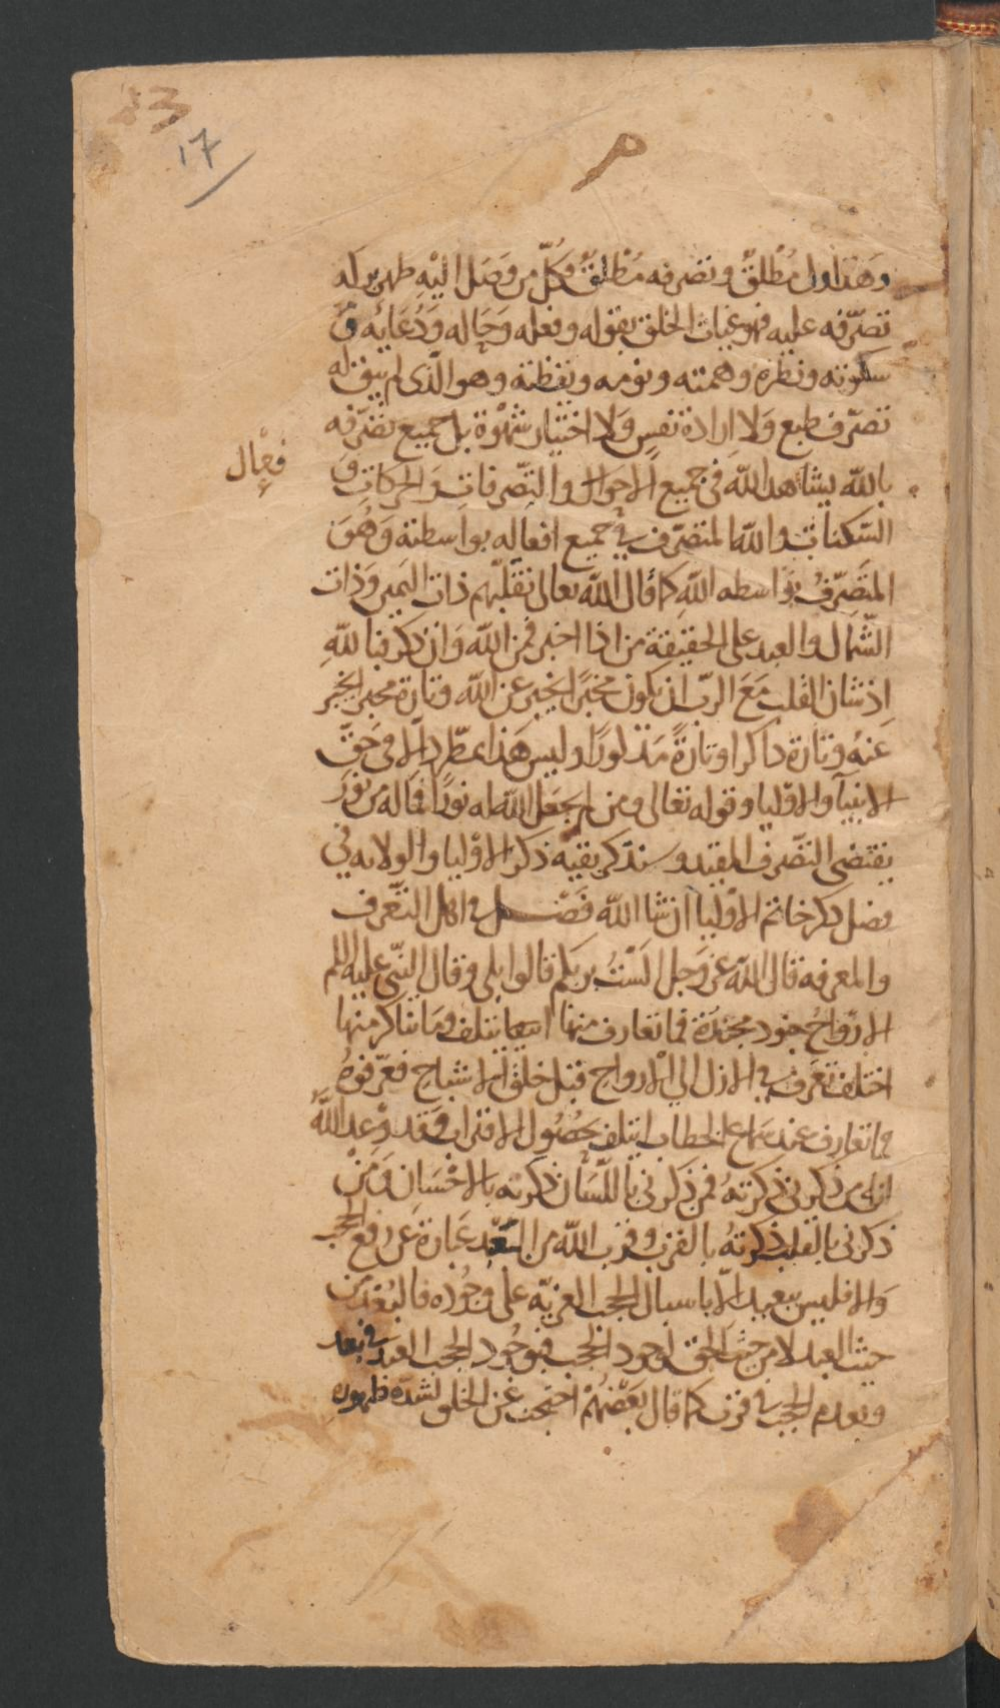 17
وهذا ولى مُطْلَقٌ وتصرفه مُطْلَقٌ وكُلّ من وصَل اليْهِ طهر بركه
تصرّفه عليه فهو غياث الخلق بقوله وفعله وَحَاله وَدُعَائِه وَ
سكوته ونظره وهمته ونومه ويقظته وهو الّذى لم يبق له
تصرّف طبع وَلا ارادة نفسٍ وَلا اختيار شهْوة بل جميع تصرّفه
بالله يشاهد اللّه فى جميع الاحوال والتصّرفاتِ وَالحركاتِ وَ
السّكنات واللّه المتصرّف فى جميع افعاله بواسطته وَهُوَ
المتَصَرّفُ بوَاسطه اللّه كما قال اللّه تعالى نقلّبهم ذات اليَمين وَذات
الشّمال والعبد على الحقيقة من اذا اخبر فمن اللّه وَان ذكر فباللّهِ
اِذ شان القلب مَعَ الربّ ان يكون مخبرًا يخبر عن اللّه وتارة مخبر يخبر
عَنهُ وتارة ذاكرا وتارةً مَذكورًا وليس هَذا بمطّرد الّا فى حَقّ
الانبيآ والاوْليا وقوله تعالى ومن لم يجعَل اللّه له نورًا فما له من نور
يقتضى التصّرف المقيد وسنذكر بقيّه ذكر الاوْليا والولايه فى
فصل ذكر خاتم الاوْليا ان شا اللّه فَصْل فى اهل التعَّرف
والمعرفه قال اللّه عزّ وَجل الَسْتُ بربّكم قالوا بلى وقال النبّى عليه السلم
الارْواحُ جنود مجنّدَة فما تعارف منها ايتلف وَما تناكر منها
اختلف تعَرف فى الازل الى الارواح قبل خلق الاشباح فعَرّفوهُ
فما تعارف عند سماع الخطاب ايتلف بحصُول الاقتراب وَقد وَعد اللّهُ
ان من ذكرنى ذكرتهُ فمن ذكرنى باللّسَان ذكرته بالاحْسَان وَمنْ
ذكرنى بالقلب ذكرتهُ بالقرب وقرب اللّه من العَبْد عبَارة عن رفع الحجب
وَالا فليس ببعيد الّا باسبال الحجب العزيّه على وجُوده فالبُعْد من
حيث العبد لا من حيث الحق لوجود الحُجب فبوجُود الحجب العبد فى بعد
وبعدم الحجب فى قرب كما قال بعَضهُمْ احتجب عن الخلق لشدّة ظهوره